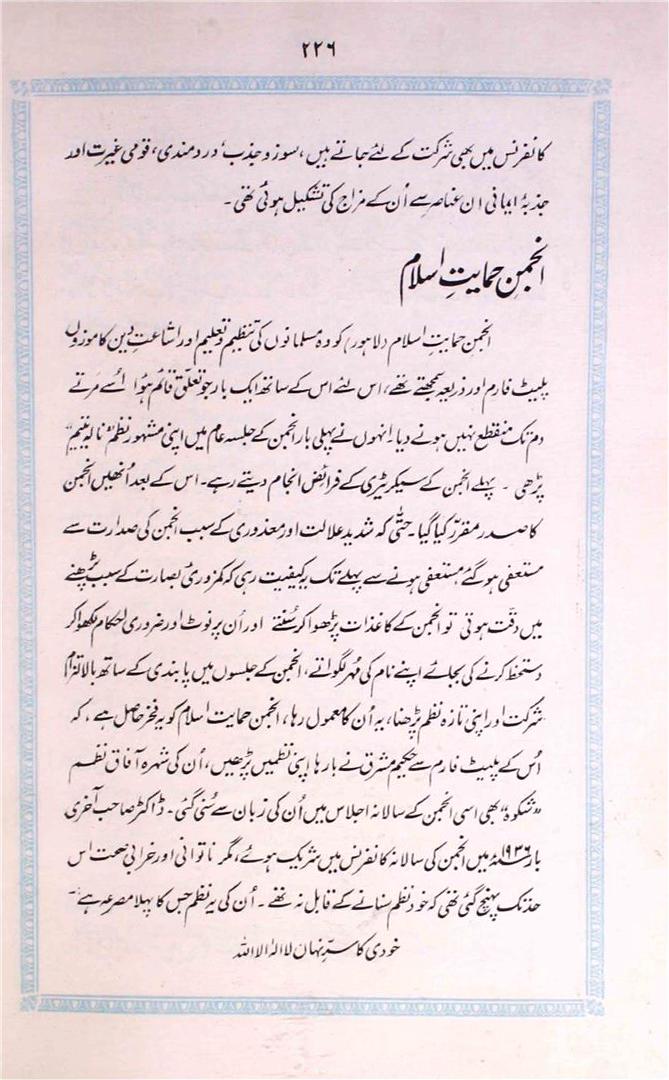 ۲۲۶
کانفرنس میں بھی شرکت کے لئے جاتے ہیں، سوز و جذب، دردمندی، قومی غیرت اور
جذبۂ ایمانی ان عناصر سے اُن کے مزاج کی تشکیل ہوئی تھی۔
انجمنِ حمایتِ اسلام
انجمن حمایتِ اسلام (لاہور) کو وہ مسلمانوں کی تنظیم و تعلیم اور اشاعتِ دین کا موزوں
پلیٹ فارم اور ذریعہ سمجھتے تھے، اس لئے اس کے ساتھ ایک بار جو تعلق قائم ہوا اُسے مرتے
دم تک منقطع نہیں ہونے دیا۔ انہوں نے پہلی بار انجمن کے جلسہ عام میں اپنی مشہور نظم "نالۂ یتیم"
پڑھی ۔ پہلے انجمن کے سیکریٹری کے فرائض انجام دیتے رہے۔ اس کے بعد اُنھیں انجمن
کا صدر مقرر کیا گیا۔ حتّٰی کہ شدید علالت اور معذوری کے سبب انجمن کی صدارت سے
مستعفی ہو گئے مستعفی ہونے سے پہلے تک یہ کیفیت رہی کہ کمزوریٔ بصارت کے سبب پڑھنے
میں دقّت ہوتی تو انجمن کے کاغذات پڑھوا کر سُنتے اور اُن پر نوٹ اور ضروری احکام لکھوا کر
دستخط کرنے کی بجائے اپنے نام کی مُہر لگواتے، انجمن کے جلسوں میں پابندی کے ساتھ بالالتزام
شرکت اور اپنی تازہ نظم پڑھنا، یہ اُن کا معمول رہا، انجمن حمایت اسلام کو یہ فخر حاصل ہے، کہ
اُس کے پلیٹ فارم سے حکیمِ مشرق نے بارہا اپنی نظمیں پڑھیں، اُن کی شہرہ آفاق نظم
"شکوہ" بھی اسی انجمن کے سالانہ اجلاس میں اُن کی زبان سے سُنی گئی۔ ڈاکٹر صاحب آخری
بار ۱۹۳۶ء میں انجمن کی سالانہ کانفرنس میں شریک ہوئے، مگر ناتوانی اور خرابیٔ صحت اس
حد تک پہنچ گئی تھی کہ خود نظم سنانے کے قابل نہ تھے ۔ اُن کی یہ نظم جس کا پہلا مصرعہ ہے۔
خودی کا سرِّ نہاں لا الٰہ الا اللہ